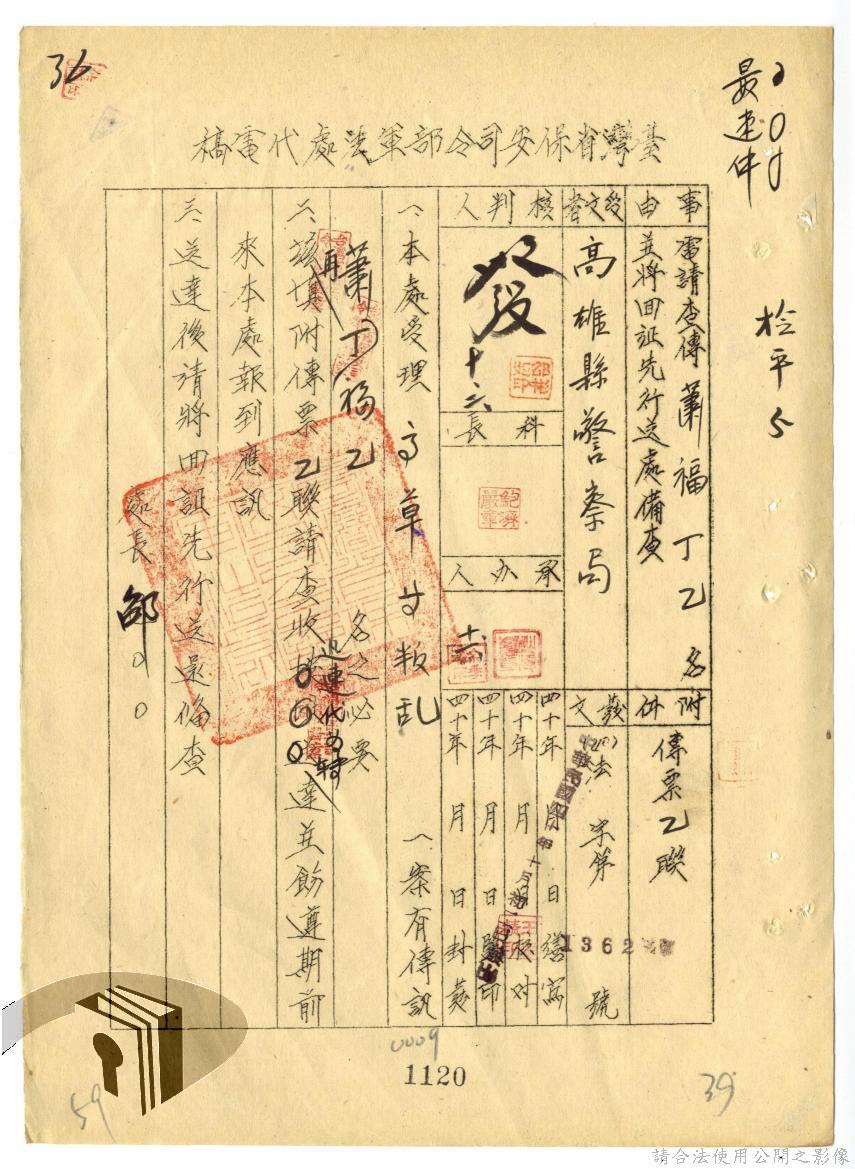 36
最速件
臺灣省保安司令部軍法處代電稿
事由
電請查傳蕭福丁乙名
並將回証先行送處備查
附件
傳票乙聯
受文者
高雄縣警察局
發文
法 字第 1362 號
核判人
發
十六
科長
承办人
十六
四十年 月 日繕寫
四十年 月 日校对
四十年 月 日監印
四十年 月 日封發
一、本處受理 叛乱 一案有傳訊
蕭福丁乙 名之必要
二、茲填附傳票乙聯請查收 迅速代為轉達並飭遵期前
來本處報到應訊
三、送達後請將回証先行送還俻查
處長 邵
0009
1120
59
39
請合法使用公開之影像